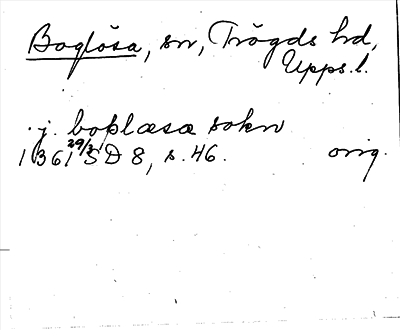 Boglösa, sn, Trögds hd,
Upps. l.
j. boklæsæ sokn
1361 29/3 SD 8, s. 46. orig.